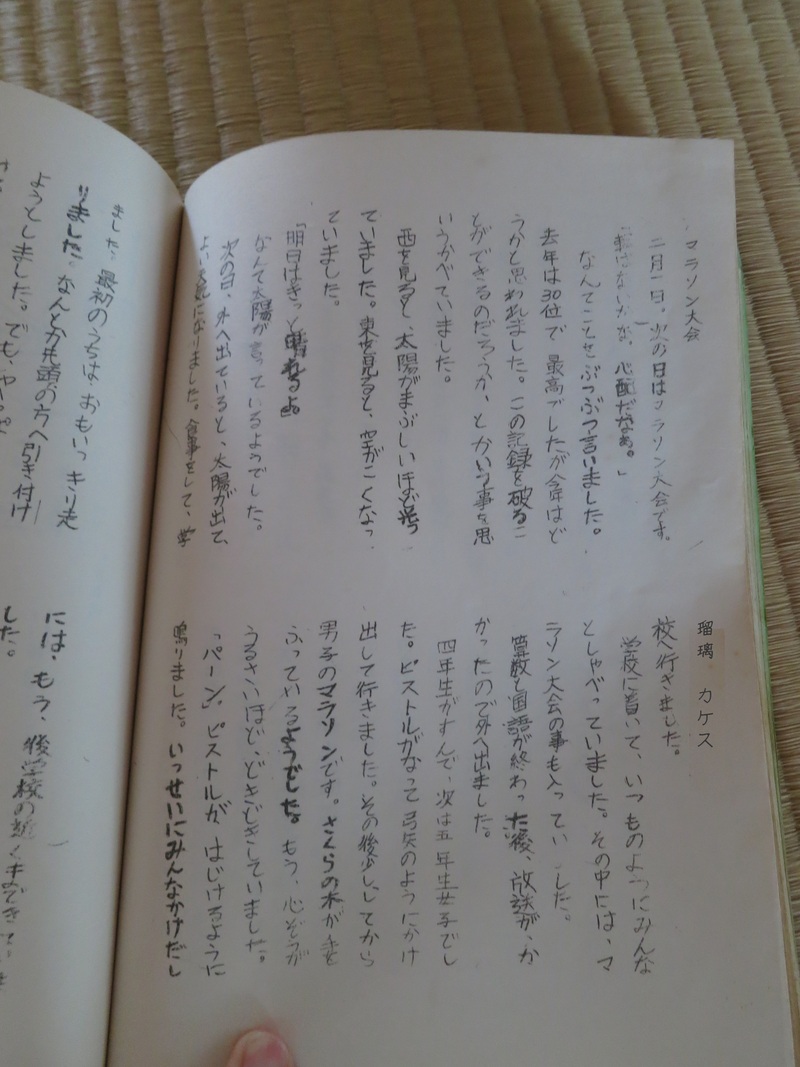 マラソン大会
瑠璃 カケス
二月一日。次の日はマラソン大会です。
「転ばないかな、心配だなぁ。」
なんてことをぶつぶつ言いました。
去年は30位で最高でしたが今年はど
うかと思われました。この記録を破るこ
とができるのだろうか、とかいう事を思
いうかべていました。
西を見ると、太陽がまぶしいほど光っ
ていました。東を見ると、空がこくなっ
ていました。
「明日はきっと晴れるよ。」
なんて太陽が言っているようでした。
次の日、外へ出ていると、太陽が出て、
よい天気になりました。食事をして、学
校へ行きました。
学校に着いて、いつものようにみんな
としゃべっていました。その中には、マ
ラソン大会の事も入ってい した。
算数と国語が終わった後、放送が、か
かったので外へ出ました。
四年生がすんで、次は五年生女子でし
た。ピストルがなって弓矢のようにかけ
出して行きました。その後少ししてから
男子のマラソンです。さくらの木が手を
ふっているようでした。もう、心ぞうが
うるさいほど、どきどきしていました。
「パーン」、ピストルが はじけるように
鳴りました。いっせいにみんなかけだし
ました。最初のうちは、おもいっきり走
りました。なんとか先頭の方へ引き付け
ようとしました。でも、
には、もう、後学校の
した。